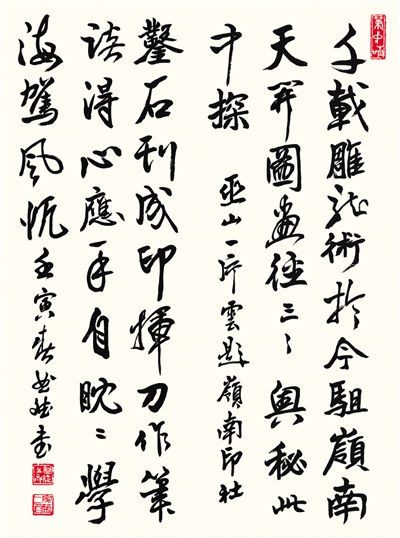 千載雕龍術於今駔嶺南
天開圖畫徑三〻奧秘此
中探 巫山一片雲題嶺南印社
鑿石刊成印揮刀作篆
談得心應手自眈〻學
海駕風帆 壬寅春書